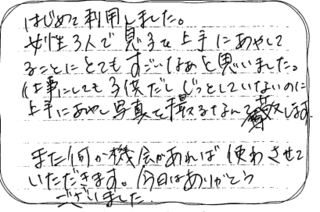 はじめて利用しました。
女性3人で息子を上手にあやして
ることにとてもすごいなぁと思いました。
仕事にしても子供だしじっとしていないのに
上手にあやし写真を撮るなんて尊敬します。
また何か機会があれば使わさせて
いただきます。今日はありがとう
ございました。